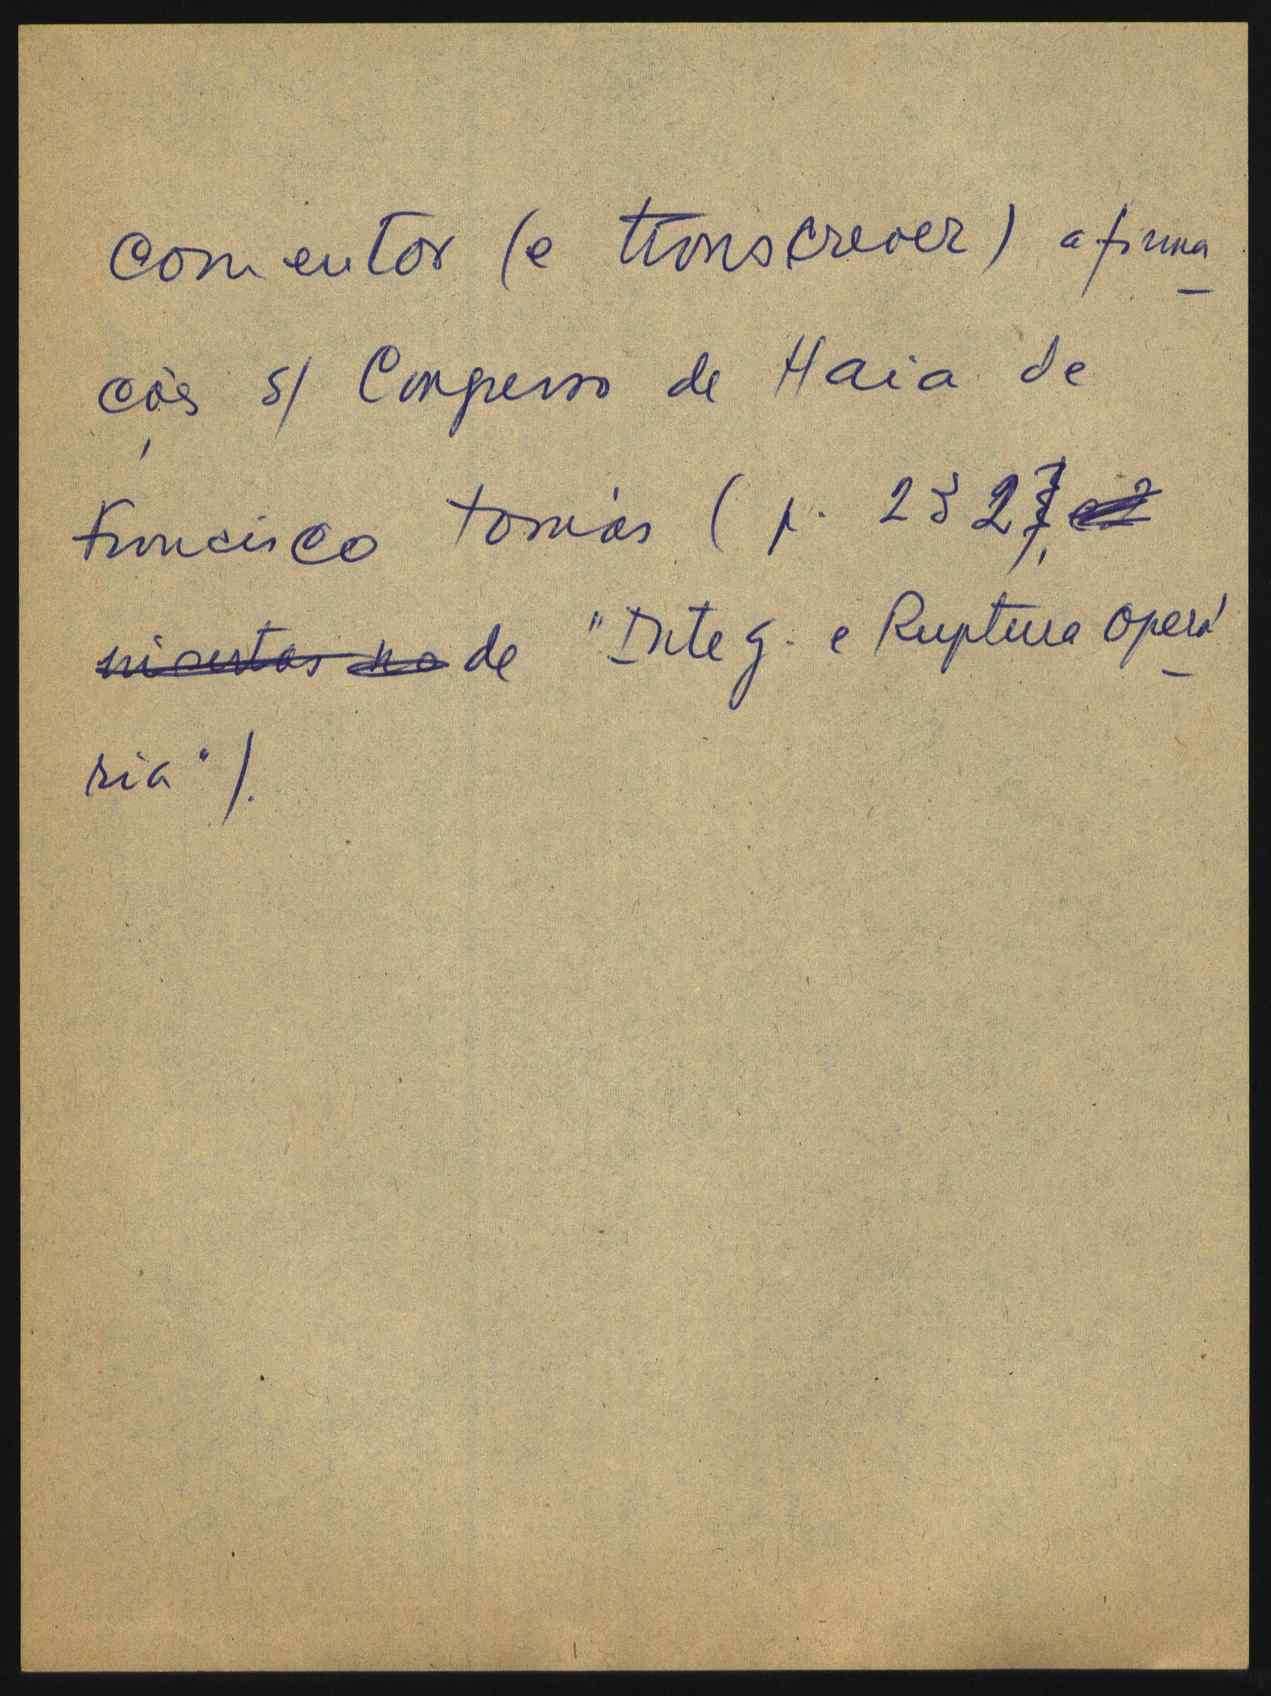 comentar (e transcrever) afirma_
ções s/ Congresso de Haia de
Francisco Tomás (p.
de "Integ. e Ruptura Operá_
ria").